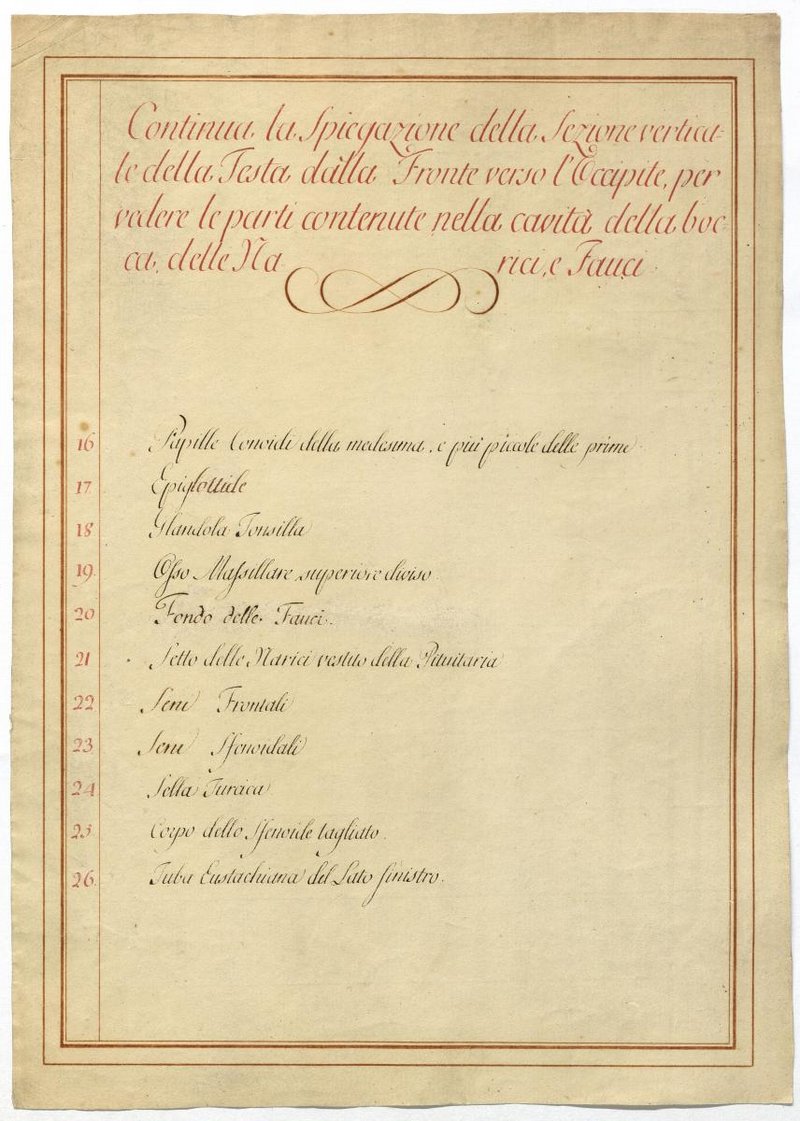 Continua la Spiegazione della Sezione vertica-
le della Testa dalla Fronte verso l'Occipite, per
vedere le parti contenute nella cavità della boc-
ca, delle Narici, e Fauci.
16 Papille Conoidi della medesima, e più piccole delle prime.
17 Epiglottide
18 Glandola Tonsilla
19. Osso Massillare superiore diviso
20 Fondo delle Fauci.
21 Setto delle Narici vestito della Pituitaria
22 Seni Frontali
23 Seni Sfenoidali
24 Sella Turcica
25. Corpo dello Sfenoide tagliato.
26. Tuba Eustachiana del Lato sinistro.